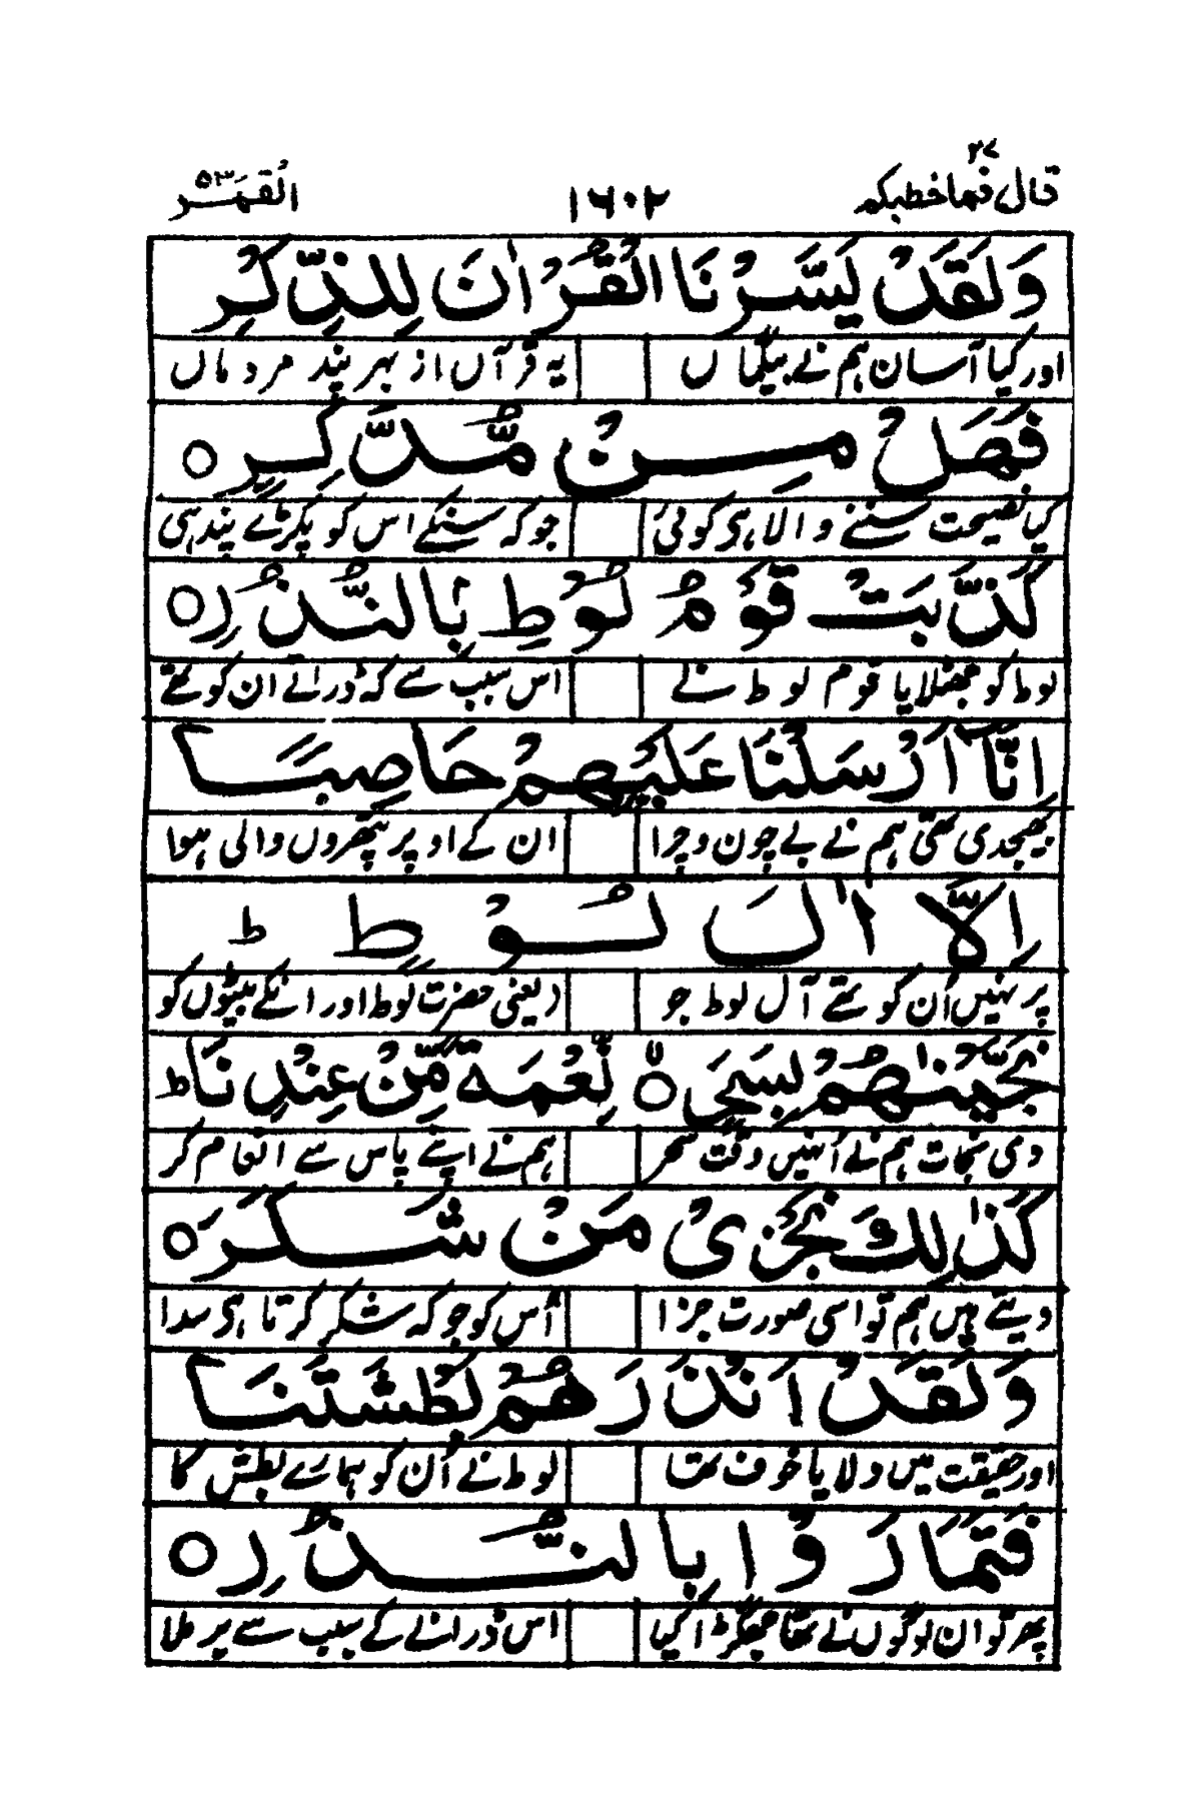 قال فما خطبکم ۲۷ ۱۶۰۲ القمر ۵۳
وَلَقَدْ يَسَّرْنَا الْقُرْاٰنَ لِلذِّكْرِ
اور کیا آسان ہم نے بیگماں یہ قرآں از بہر پند مردماں
فَهَلْ مِنْ مُّدَّكِرٍ ○
کیا نصیحت سننے والا ہی کوئی جو کہ سنکے اس کو پکڑے پند ہی
كَذَّبَتْ قَوْمُ لُوْطٍ بِالنُّذُرِ ○
لوط کو جھٹلایا قوم لوط نے اس سبب سے کہ ڈراتے ان کو تھے
اِنَّا اَرْسَلْنَا عَلَيْهِمْ حَاصِبًا
بھیجدی تھی ہم نے بے چون و چرا ان کے اوپر پتھروں والی ہوا
اِلَّا اٰلَ لُوْطٍ ط
پر نہیں اُن کو تھے آل لوط جو (یعنی حضرت لوط اور انکے بیٹیوں کو
نَجَّيْنٰهُمْ بِسَحَرٍ ○ نِّعْمَةً مِّنْ عِنْدِنَا ط
دی نجات ہم نے اُنہیں وقت سحر ہم نے اپنے پاس سے انعام کر
كَذٰلِكَ نَجْزِىْ مَنْ شَكَرَ ○
دیتے ہیں ہم تو اسی صورت جزا اُس کو جو کہ شکر کرتا ہی سدا
وَلَقَدْ اَنْذَرَهُمْ بَطْشَتَنَا
اور حقیقت میں دلایا خوف تھا لوط نے اُن کو ہمارے بطش کا
فَتَمَارَوْا بِالنُّذُرِ ○
پھر تو ان لوگوں نے تھا جھگڑا کیا اس ڈرانے کے سبب سے برملا